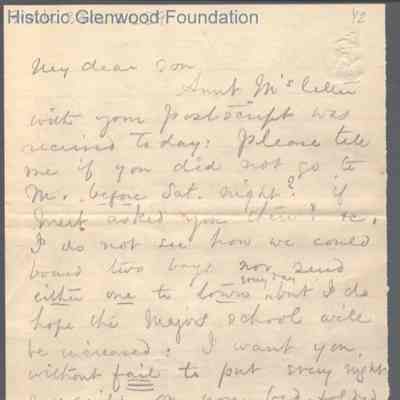 Historic Glenwood Foundation
42
My dear Son,
Aunt M's letter
with your Postscript was
received today: Please tell
me if you did not go to
M. before Sat. night? if
asked you then? &c.
I do not see how we could
board two boys nor send
either one to town, but I do
hope the Major's school will
be increased: I want you,
without fail to put every night